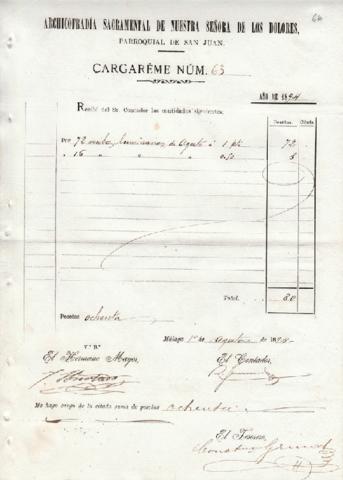 64
ARCHICOFRADÍA SACRAMENTAL DE NUESTRA SEÑORA DE LOS DOLORES,
PARROQUIAL DE SAN JUAN.
CARGARÉME NÚM. 63
AÑO DE 1894
Recibí del Sr. Contador las cantidades siguientes.
Pesetas. Cénts.
Por 72 luminarias de Agosto á 1 pta 72
" 16 " " " 0.50 8
Total. 80
Pesetas ochenta
Málaga 1º de Agosto de 1894
V.º B.º
El Hermano Mayor, El Contador,
Me hago cargo de la citada suma de pesetas ochenta
El Tesorero,